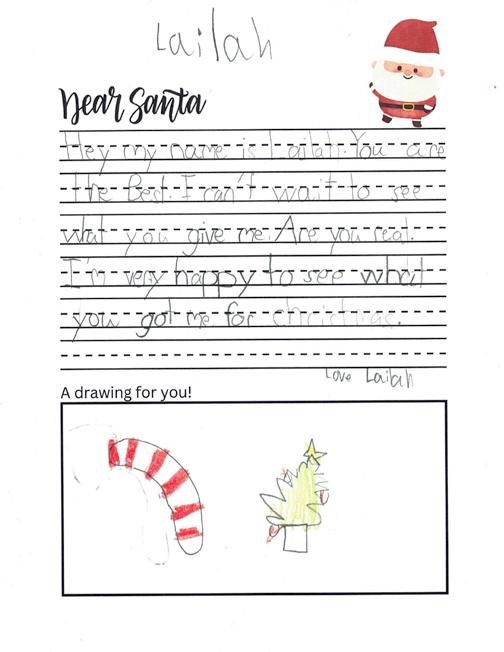 Lailah
Dear Santa
Hey my name is Lailah. You are
the Best. I can't wait to see
what you give me. Are you real.
I'm very happy to see what
you got me for christmas.
Love Lailah
A drawing for you!